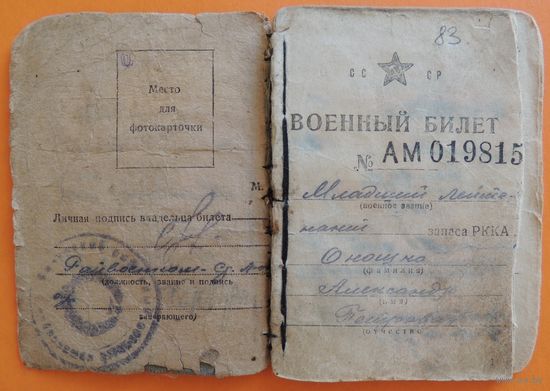 Место
для
фотокарточки
М.
Личная подпись владельца билета
(должность, звание и подпись
заверяющего)
83.
СС СР
ВОЕННЫЙ БИЛЕТ
№ АМ 019815
Младший лейте-
(военное звание)
нант запаса РККА
Оношко
(фамилия)
Александр
(имя)
(отчество)
1